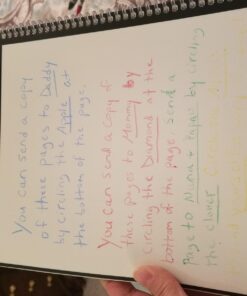 You can send a copy
of these pages to Daddy
by circling the Apple at
the bottom of the page.
You can send a copy of
these pages to Mommy by
circling the Diamond at the
bottom of the page. Send a
page to Nana + Papa by circling
the clover